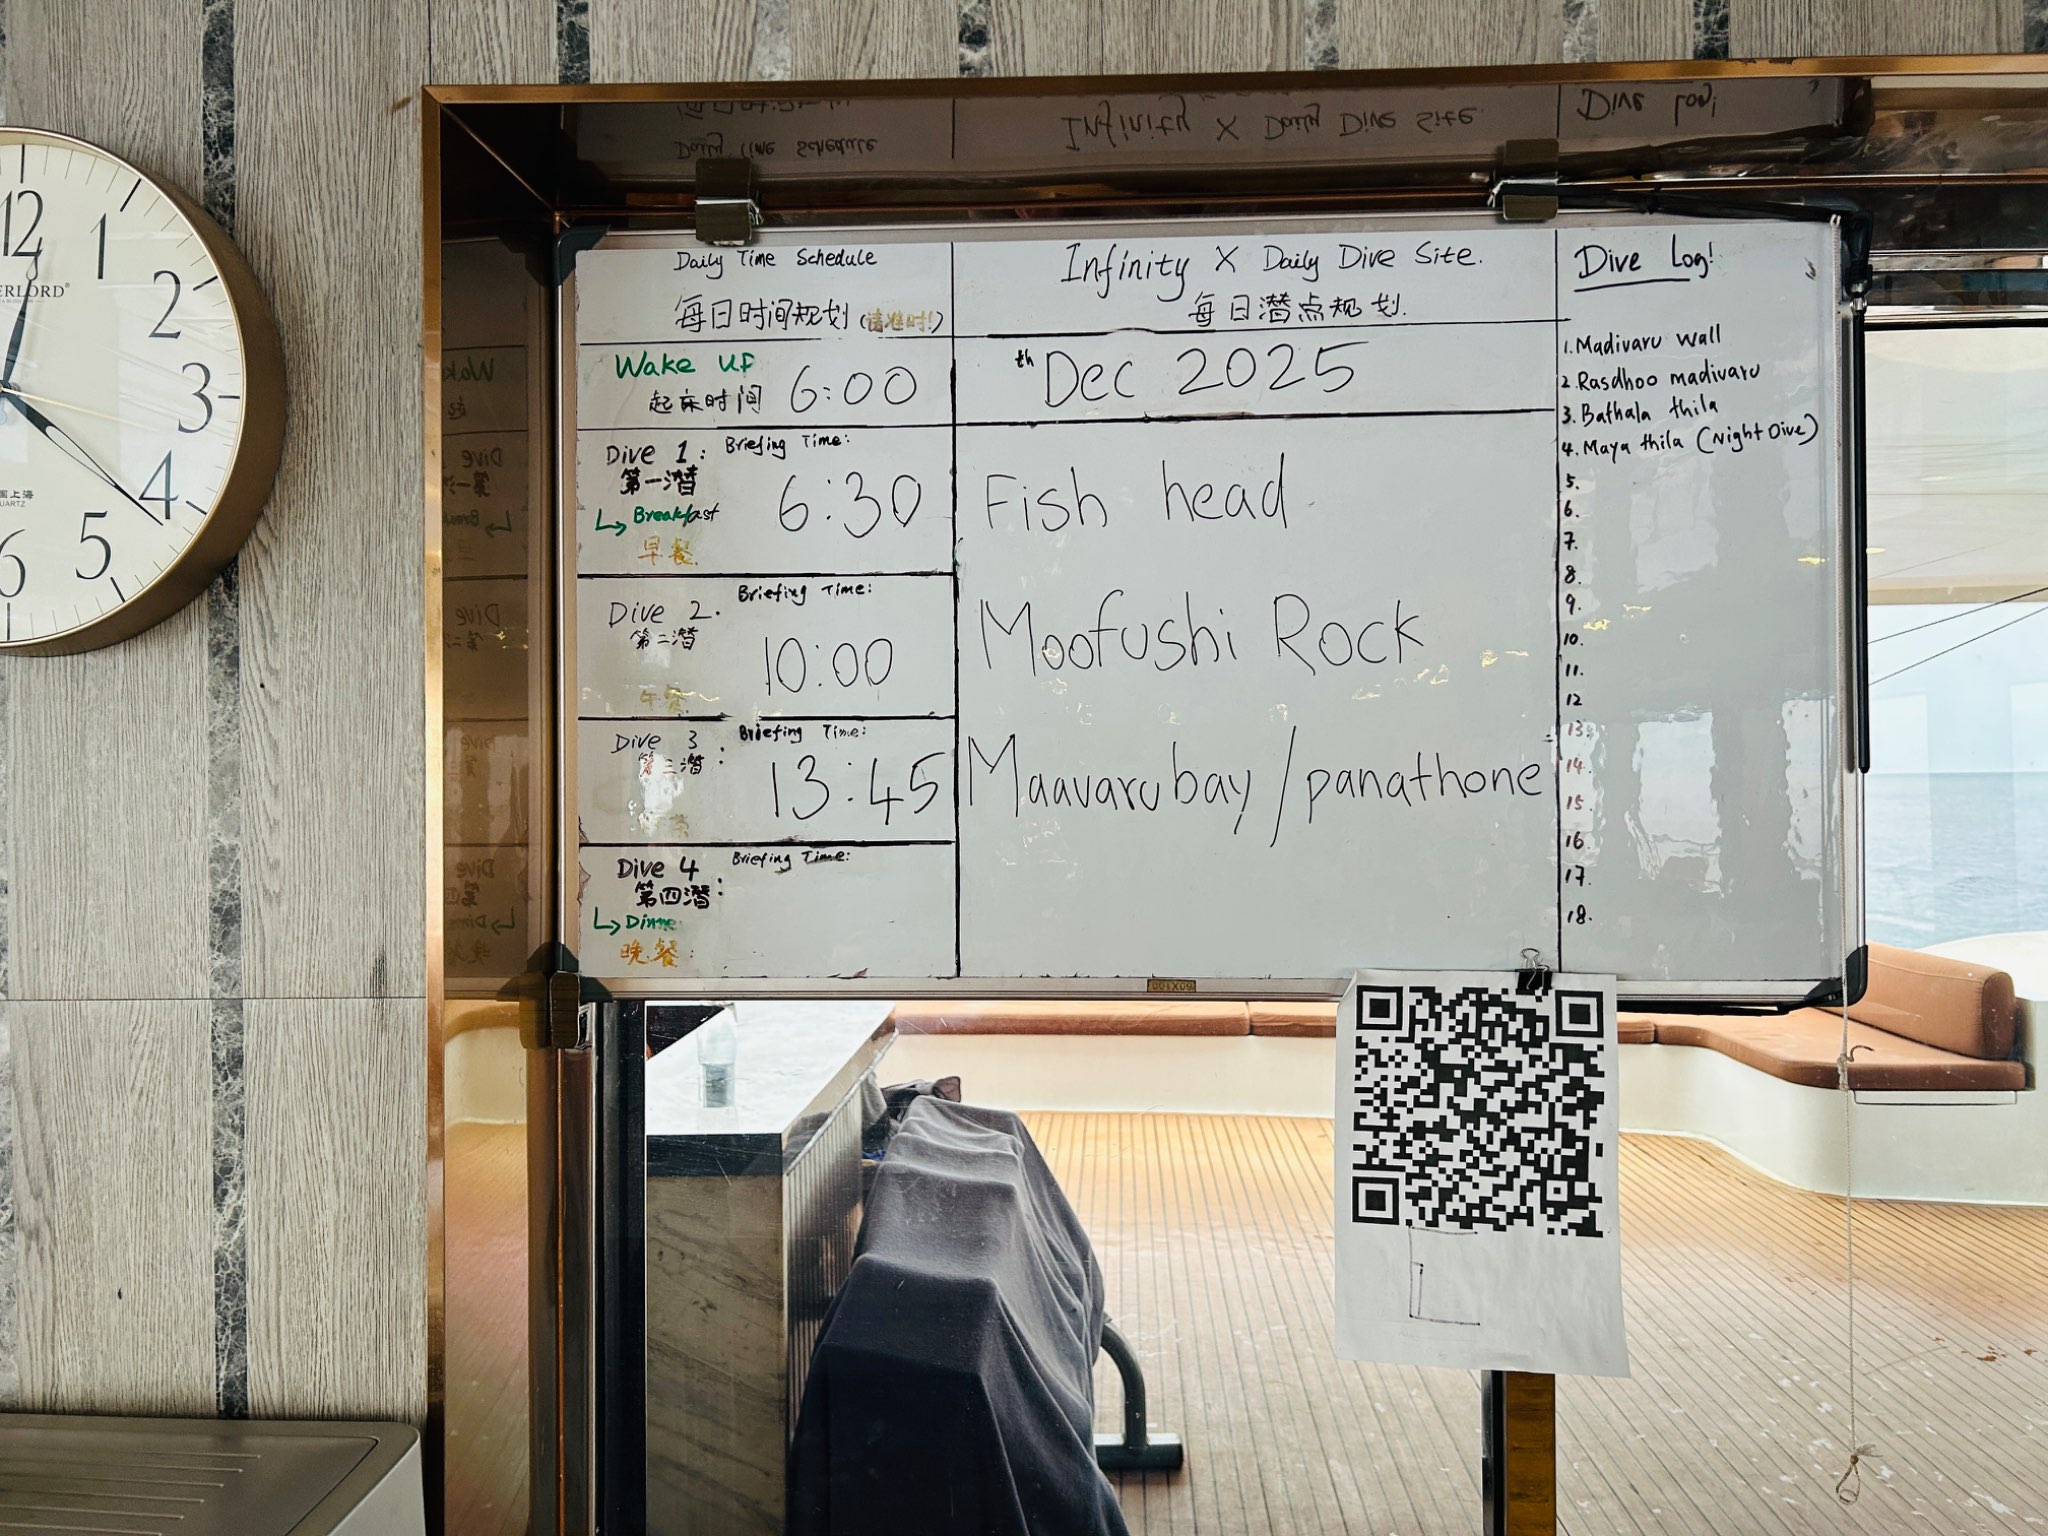 12
1
2
3
4
5
6
ERLORD
国上海
UARTZ
Daily Time Schedule
每日时间规划 (请准时!)
Infinity X Daily Dive Site.
每日潜点规划.
Dive Log!
Wake up
起床时间 6:00
th Dec 2025
Dive 1: Briefing Time:
第一潜
6:30
Breakfast
早餐.
Fish head
Dive 2. Briefing Time:
第二潜
10:00
午餐
Moofushi Rock
Dive 3: Briefing Time:
第三潜
13:45
茶
Maavaru bay/panathone
Dive 4: Briefing Time:
第四潜
Dinne
晚餐:
1. Madivaru wall
2. Rasdhoo madivaru
3. Bathala thila
4. Maya thila (Night Dive)
5.
6.
7.
8.
9.
10.
11.
12
13.
14.
15
16
17.
18.
60X100